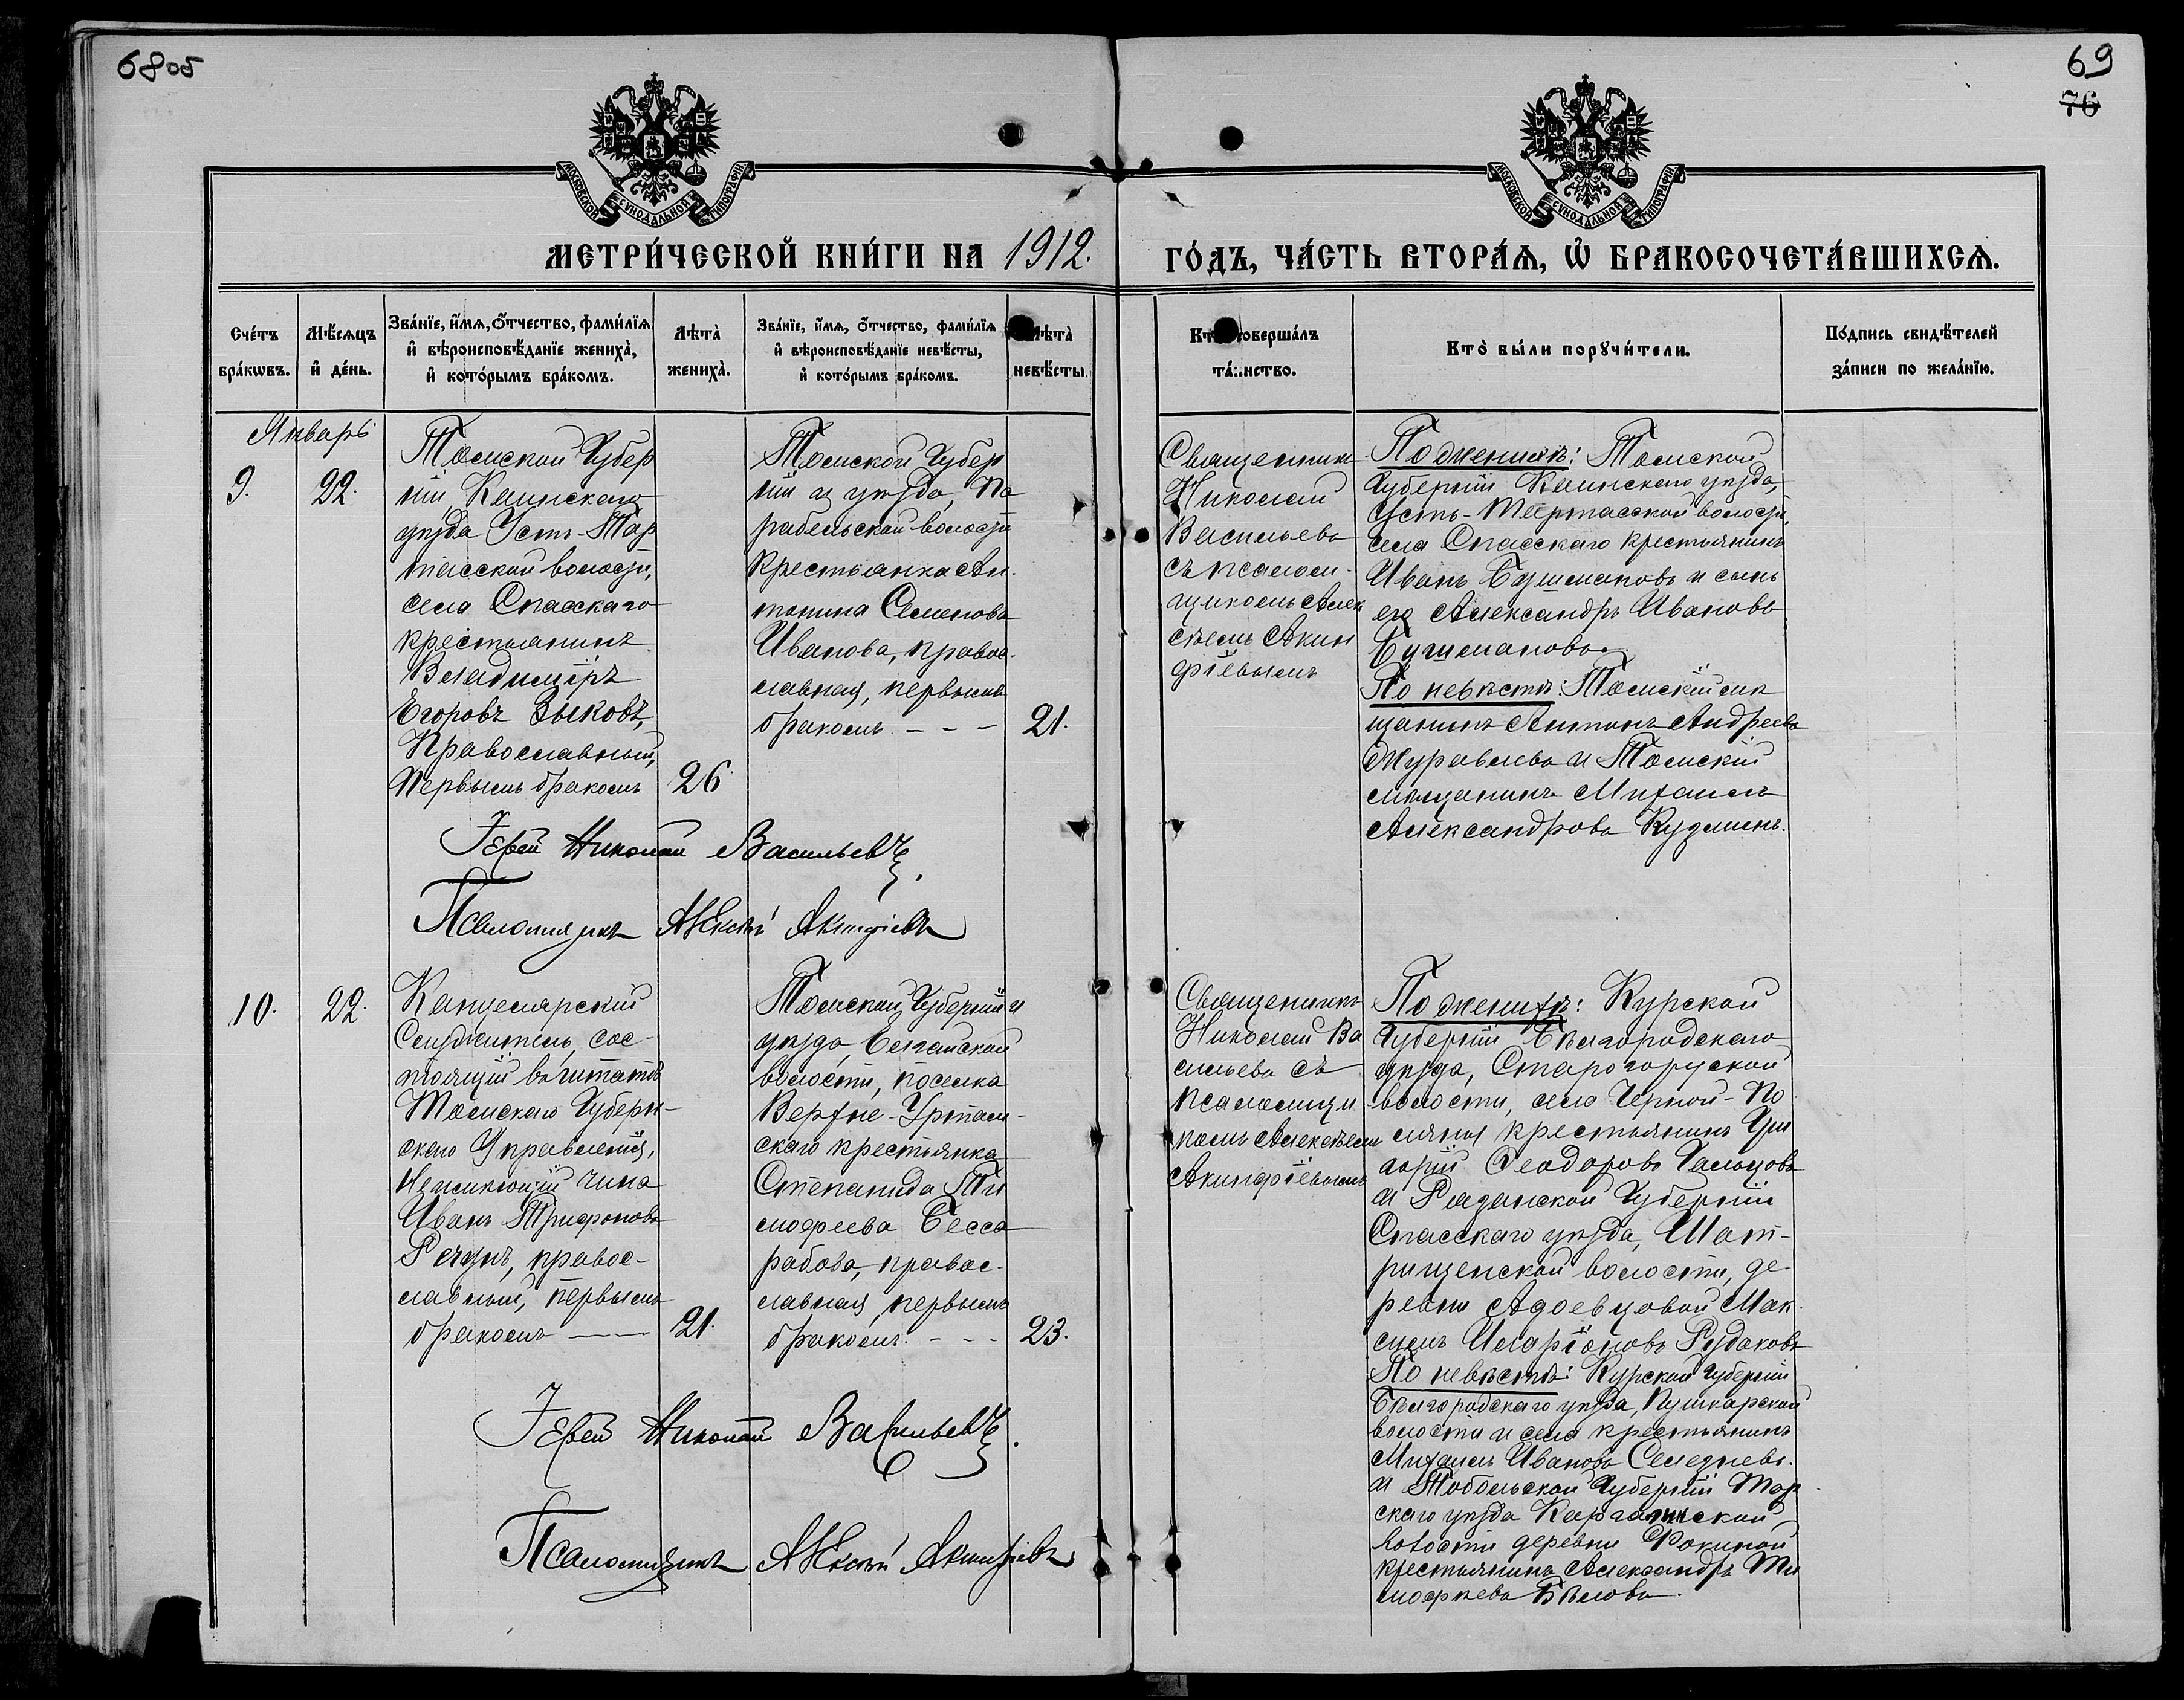 68об
69
76
МОСКОВСКОЙ СУНОДАЛЬНОЙ ТИПОГРАФІИ
МОСКОВСКОЙ СУНОДАЛЬНОЙ ТИПОГРАФІИ
МЕТРИ́ЧЕСКОЙ КНИ́ГИ НА 1912.
ГО́ДЪ, ЧА́СТЬ ВТОРА́Я, Ѡ БРАКОСОЧЕТА́ВШИХСЯ.
Сче́тъ
бра́кѡвъ.
Мѣ́сяцъ
и҆ де́нь.
Зва́нїе, и҆́мя, о҆́тчество, фами́лїя
и҆ вѣроисповѣ́данїе жениха̀,
и҆ кото́рымъ бра́комъ.
Лѣта̀
жениха̀.
Зва́нїе, и҆́мя, о҆́тчество, фами́лїя
и҆ вѣроисповѣ́данїе невѣ́сты,
и҆ кото́рымъ бра́комъ.
Лѣта̀
невѣ́сты.
Кто̀ соверша́лъ
та́инство.
Кто̀ бы́ли порꙋчи́тели.
По́дпись свидѣ́телей
за́писи по жела́нїю.
Январь
9.
22.
Томской Губер
ніи, Каинскаго
уѣзда Усть-Тар
тасской волости,
села Спасскаго
крестьянинъ
Владиміръ
Егоровъ Зыковъ,
Православный,
Первымъ бракомъ
26
Томской Губер
ніи и уѣзда, Па
рабельской волости
крестьянка Ан
тонина Семенова
Иванова, правос-
лавная, первымъ
бракомъ - - -
21.
Священникъ
Николай
Васильевъ
съ псалом-
щикомъ Алек
сѣемъ Акин
фіевымъ
По женихѣ: Томской
Губерніи Каинскаго уѣзда,
Усть-Тартасской волости,
села Спасскаго крестьянинъ
Иванъ Бушмановъ и сынъ
его Александръ Ивановъ
Бушмановъ.
По невѣстѣ: Томскій мѣ
щанинъ Антонъ Андреевъ
Журавлевъ и Томскій
мѣщанинъ Михаилъ
Александровъ Кузминъ.
Іерей Николай Васильевъ.
Псаломщикъ Алексѣй Акинфіевъ
10.
22.
Канцелярскій
Служитель, сос-
тоящій въ штатѣ
Томскаго Губерн-
скаго Управленія,
Неимѣющій чина
Иванъ Трифоновъ
правос-
лавный, первымъ
бракомъ ——
21.
Томской Губерніи и
уѣзда,
волости, поселка
Верхне-Уртам-
скаго крестьянка
Степанида Ти
мофеева Бесса
рабова, правос-
лавная, первымъ
бракомъ. - - -
23.
Священникъ
Николай Ва
сильевъ съ
псаломщи
комъ Алексѣемъ
Акинфіевымъ
По женихѣ: Курской
Губерніи Бѣлгородскаго
уѣзда,
волости, села Черной-По
ляны крестьянинъ Гри
горій Феодоровъ
и Рязанской Губерніи
Спасскаго уѣзда, Шат-
рищенской волости, де-
ревни Мак
симъ Иларіоновъ Рудаковъ
По невѣстѣ: Курской Губерніи
Бѣлгородскаго уѣзда, Пушкарской
волости и села крестьянинъ
Михаилъ Ивановъ
и Тобольской Губерніи Тар
скаго уѣзда
волости деревни Фокиной
крестьянинъ Александръ Ти
мофѣевъ Бѣловъ.
Іерей Николай Васильевъ.
Псаломщикъ Алексѣй Акинфіевъ